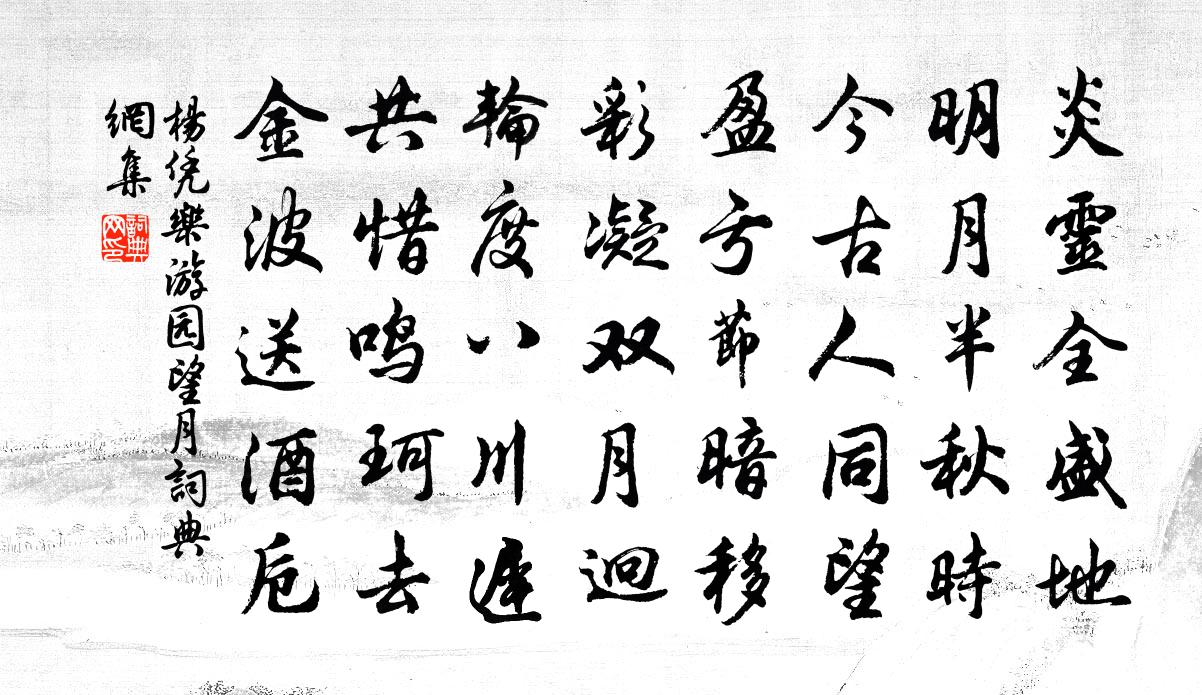 炎靈全盛地
明月半秋時
今古人同望
盈亏節暗移
彩凝双月迥
輪度八川遲
共惜鸣珂去
金波送酒卮
楊凭樂游园望月詞典
網集
詞典网印